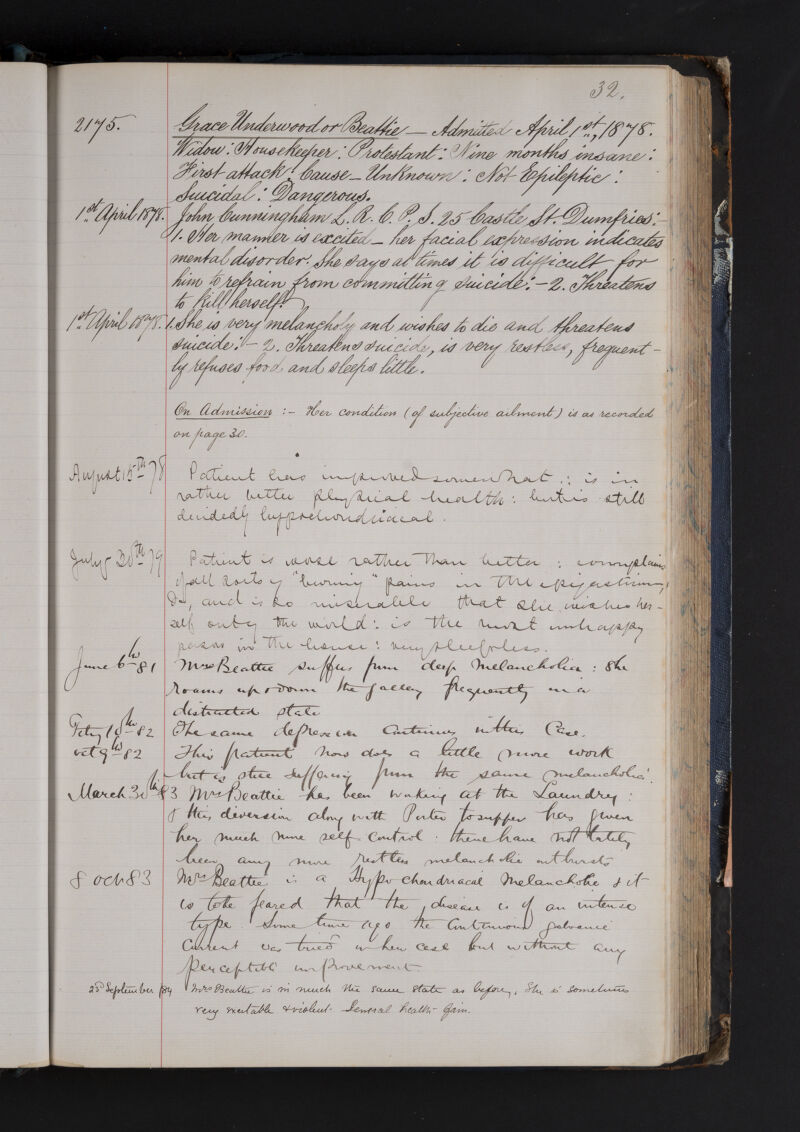 32.
2175. Grace Underwood or Beattie — Admitted April 1st, 1878.
Widow: Housekeeper: Protestant: Nine months insane:
First attack: Cause — Unknown: Not Epileptic:
Suicidal: Dangerous.
1st April 1878. John Cunningham L. R. C. P. S. 25 Castle St. Dumfries:—
1. Her manner is excited — her facial expression indicates
mental disorder. She says at times it is difficult for
him to refrain from committing suicide:— 2. Threatens
to kill herself.
1st April 1878. 1. She is very melancholy and wishes to die and threatens
suicide:— 2. Threatens suicide, is very restless, frequent-
ly refuses food and sleeps little.
On Admission :— Her condition (of subjective ailment) is as recorded
on page 30.
August 15th 78 Patient has improved somewhat: is in
rather better physical health: but is still
decidedly hypochondriacal.
July 30th 79 Patient is worse rather than better: complains
of all sorts of "burning" pains in the epigastrium,
&c, and is so miserable that she wishes her-
self out of the world: is the most unhappy
person in the house: very sleepless.
June 6th 81 Mrs Beattie suffers from deep Melancholia: She
roams up & down the gallery frequently in a
distracted state
Feby 18th 82 The same depression continues in this Case.
Oct 9th 82 This patient now does a little more work
but is still suffering from the same melancholia.
March 30th 83 Mrs Beattie has been working at the Laundry:
& this diversion along with Porter to supper has given
her much more self control: there have not lately
been any more restless melancholic outbursts
8 Oct 83 Mrs Beattie is a Hypochondriacal Melancholic & it
is to be feared that the disease is of an intense
type. Some time ago the Continuous galvanic
Current was tried in her case but without any
perceptible improvement
23d September /84 Mrs Beattie is in much the same state as before, She is sometimes
very excitable & violent. General health